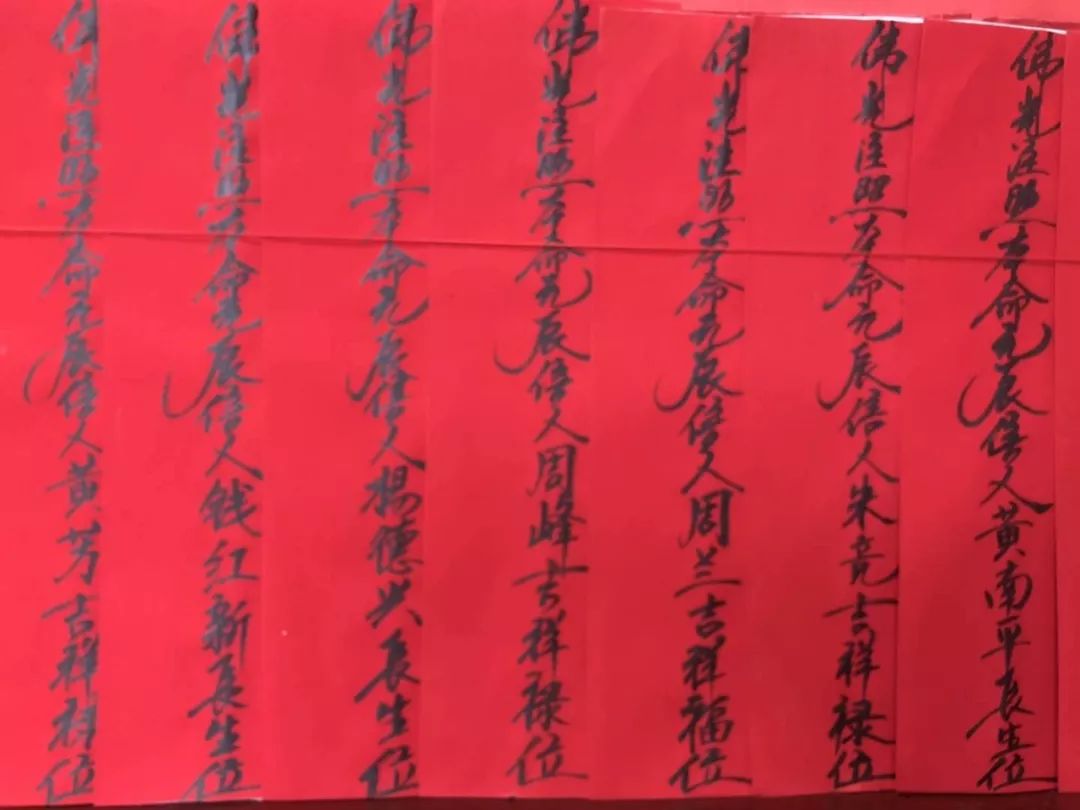 佛光注照本命元辰信人黄南平长生位
佛光注照本命元辰信人朱亮吉祥禄位
佛光注照本命元辰信人周兰吉祥福位
佛光注照本命元辰信人周峰吉祥禄位
佛光注照本命元辰信人杨德兴长生位
佛光注照本命元辰信人钱红新长生位
佛光注照本命元辰信人黄芳吉祥位